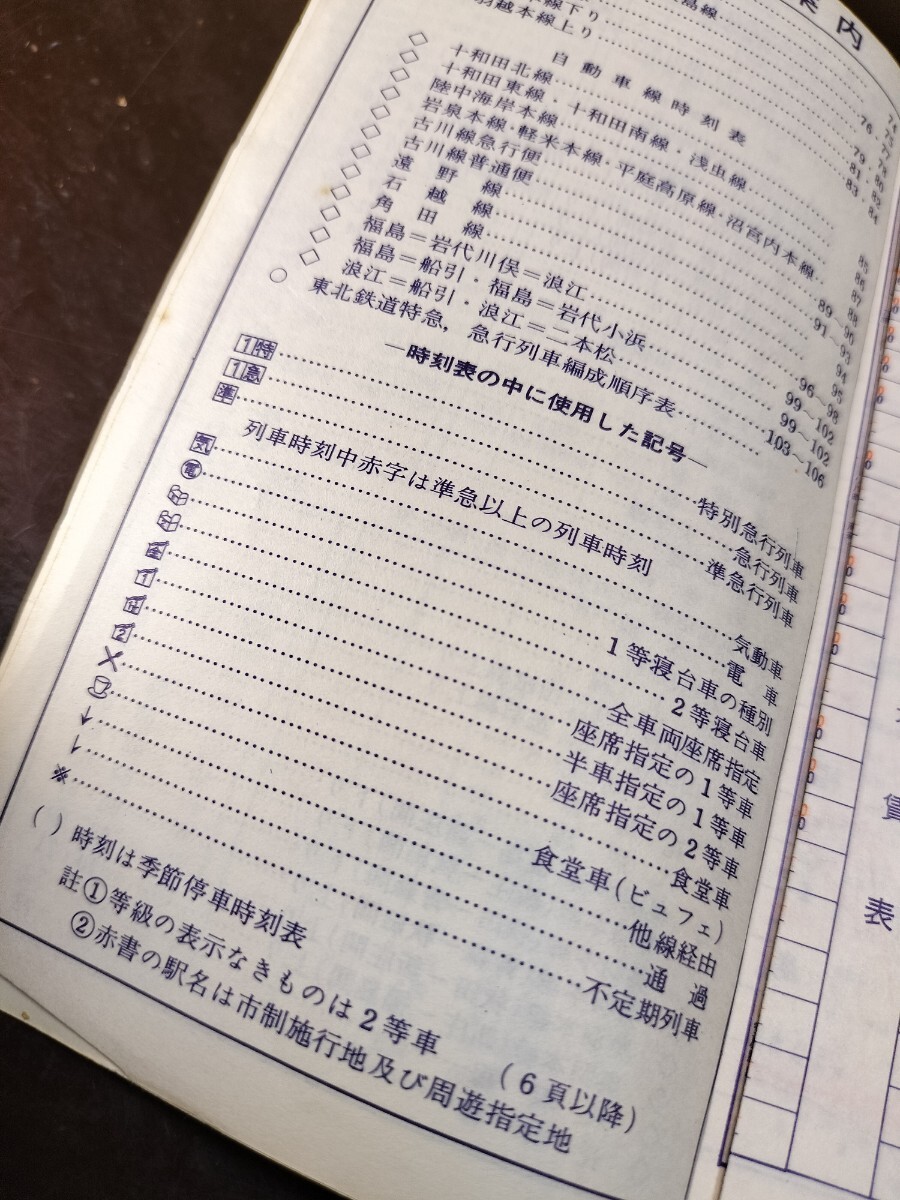 案内
島線
線下り
羽越本線上り
自動車線時刻表
十和田北線
十和田東線・十和田南線・浅虫線
陸中海岸本線
岩泉本線・軽米本線・平庭高原線・沼宮内本線
古川線急行便
古川線普通便
遠野線
石越線
角田線
福島=岩代川俣=浪江
福島=船引・福島=岩代小浜
浪江=船引・浪江=二本松
○ 東北鉄道特急,急行列車編成順序表
96~98
99~102
99~102
103~106
―時刻表の中に使用した記号―
1特 特別急行列車
1急 急行列車
準 準急行列車
列車時刻中赤字は準急以上の列車時刻
気 気動車
電 電車
1等寝台車の種別
2等寝台車
全 全車両座席指定
1 座席指定の1等車
半車指定の1等車
2 座席指定の2等車
食堂車
食堂車(ビュフェ)
他線経由
↓ 通過
※ 不定期列車
( )時刻は季節停車時刻表
註①等級の表示なきものは2等車
②赤書の駅名は市制施行地及び周遊指定地
(6頁以降)
賃
表